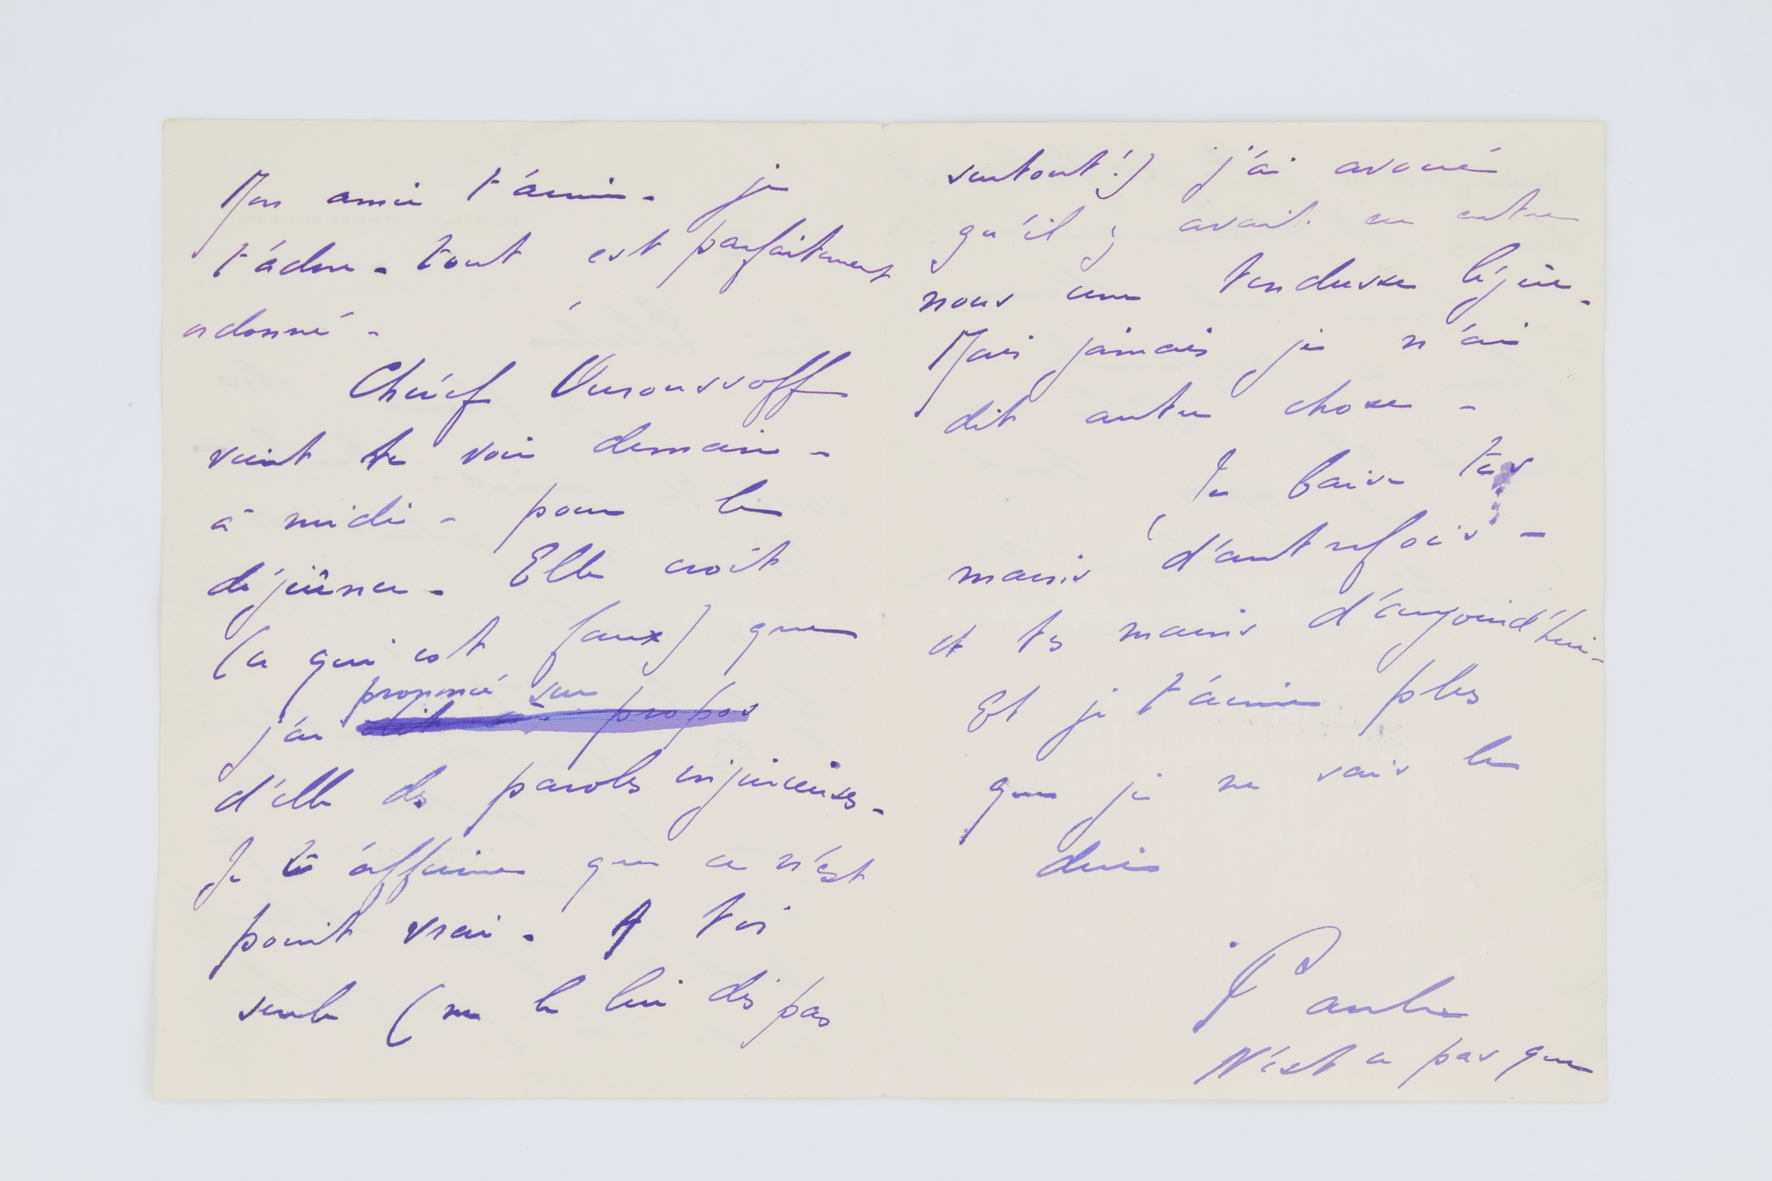 Mon amie t'aime. je
t'adore. tout est parfaitement
ordonné -
Chérief Ouroussoff
vient te voir demain -
à midi - pour le
déjeûner. Elle croit
(ce qui est faux) que
prononcé sur
j'ai dit propos
d'elle des paroles injurieuses.
Je t'affirme que ce n'est
point vrai. A toi
seule (ne le lui dis pas
surtout!) j'ai avoué
qu'il y avait eu entre
nous une tendresse légère.
Mais jamais je n'ai
dit autre chose -
Je baise tes
mains d'autrefois -
et tes mains d'aujourd'hui -
Et je t'aime plus
que je ne sais le
dire
Paule
N'est ce pas que